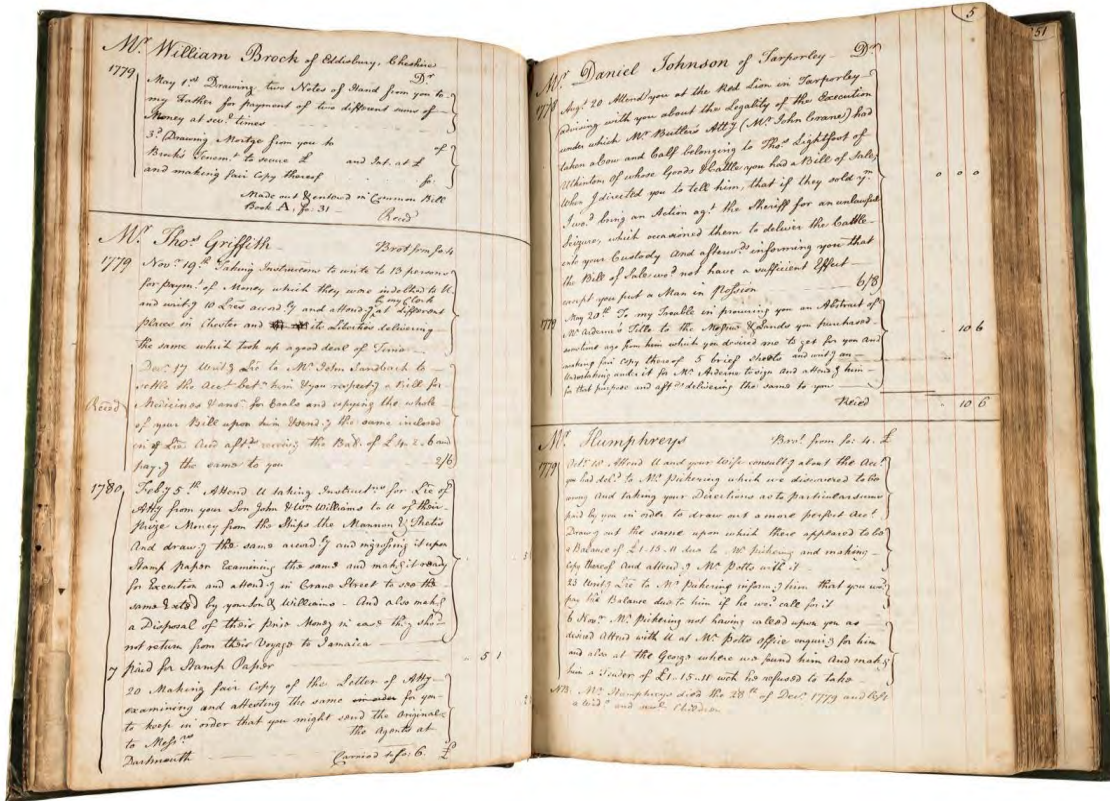 Mr. William Brock of Eddisbury, Cheshire
Dr
1779
May 1st Drawing two Notes of Hand from you to
my Father for payment of two different sums of
Money at sevl. times
3d. Drawing Mortge from you to of
Brock's Tenemt. to secure £ and Int. at £
and making fair Copy thereof fo:
Made out & entered in Common Bill
Book A. fo. 31
Recd
Mr. Thos. Griffith Brot from fo: 4
1779 Novr. 19th Taking Instructions to write to 13 persons
for paymt. of Money which they were indebted to U
and writg. 10 Lres accordgly and attendg. by my Clerk at different
places in Chester and its Liberties delivering
the same which took up a good deal of Time
Decr. 17 Writg Lre to Mr. John Sandbach to
settle the Acct. betn. him & you respectg a Bill for
Recd
Medicines & ansr. for Coals and copying the whole
of your Bill upon him & sendg. the same inclosed
in Lre And aftds receiving the Bal. of £4. 2. 6 and
payg. the same to you 2/6
1780 Feby 5th. Attend U taking Instructns for Lre of
Atty from your Son John & Wm Williams to U of their
Prize Money from the Ships the & Thetis
And drawg the same accordgly and ingrossing it upon
Stamp Paper Examining the same and makg it ready
for Execution and attendg in Crane Street to see the
same Exted by your Son & Williams - And also makg
a Disposal of their prize Money in case they shod.
not return from their Voyage to Jamaica
7 paid for Stamp Paper 5 1
20 Making fair Copy of the Letter of Atty
examining and attesting the same in order for you
to keep in order that you might send the Original
to Messrs the Agents at
Dartmouth Carried to fo: 6. £
5
51
Mr. Daniel Johnson of Tarporley Dr
1778 Augt 20 Attendg you at the Red Lion in Tarporley
advising with you about the Legality of the Execution
under which Mr Butler's Atty (Mr John Crane) had
taken a Cow and Calf belonging to Thos Lightfoot of
Utkinton of whose Goods & Cattle you had a Bill of Sale,
When I directed you to tell him, that if they sold ym
I wod. bring an Action agt the Sheriff for an unlawful
Seizure, which occasioned them to deliver the Cattle
into your Custody And afterwds informing you that
the Bill of Sale wod. not have a sufficient Effect
except you put a Man in Possion 6/8
0 0 0
1779 May 20th To my Trouble in procuring you an Abstract of
Mr Arderne's Title to the Messuage & Lands you purchased
sometime ago from him which you desired me to get for you And
making fair Copy thereof 5 brief sheets and writg an
Undertaking under it for Mr. Arderne to sign And attendg him
for that purpose and aftds delivering the same to you
10 6
Recd 10 6
Mr. Humphreys Brot. from fo: 4. £
1779 Octr. 18 Attend U and your Wife consultg about the Acct.
you had deld. to Mr. Pickering which we discovered to be
wrong And taking your Directions as to particular sums
paid by you in order to draw out a more perfect Acct
Drawg out the same upon which there appeared to be
a Balance of £1-15-11 due to Mr Pickering and making
Copy thereof And attendg Mr Potts with it
25 Writg Lre to Mr Pickering informg him that you wod
pay the Balance due to him if he wod. call for it
6 Novr. Mr. Pickering not having called upon you as
desired Attend with U at Mr. Potts office enquirg for him
and also at the George where we found him And makg
him a Tender of £1-15-11 wch he refused to take
NB. Mr. Humphreys died the 28th of Decr. 1779 and left
a Widw and sevl. Children